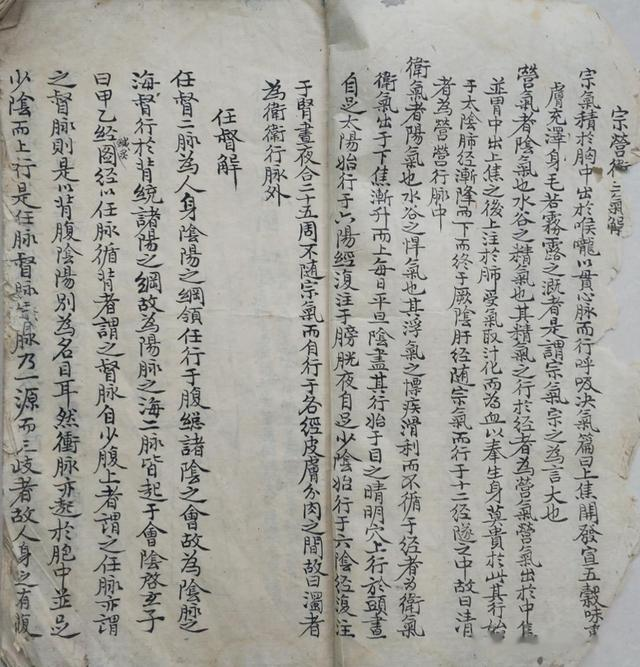 宗營衛三氣解
宗氣積於胸中出於喉嚨以貫心脉而行呼吸決氣篇曰上焦開發宣五穀味
膚充澤身毛若霧露之溉者是謂宗氣宗之為言大也
營氣者陰氣也水谷之精氣也其精氣之行於經者為營氣營氣出於中焦
並胃中出上焦之後上注於肺受氣取汁化而為血以奉生身莫貴於此其行始
于太陰肺經漸降而下而終于厥陰肝經隨宗氣而行于十二經隧之中故曰清
者為營營行脉中
衛氣者陽氣也水谷之悍氣也其浮氣之慓疾滑利而不循于經者為衛氣
衛氣出于下焦漸升而上每日平旦陰盡其行始于目之睛明穴上行於頭晝
自足太陽始行于六陽經復注于膀胱夜自足少陰始行于六陰經復注
于腎晝夜合二十五周不随宗氣而自行于各經皮膚分肉之間故曰濁者
為衛衛行脉外
任督解
任督二脉為人身陰陽之綱領任行于腹總諸陰之會故為陰脉之
海督行於背統諸陽之綱故為陽脉之海二脉皆起于會陰啓玄子
曰甲乙经圖経以任脉循背者謂之督脉自少腹上者謂之任脉亦謂
之督脉則是以背腹陰陽別為名目耳然衝脉亦起於胞中並足
少陰而上行是任脉督脉脉乃一源而三歧者故人身之有腹